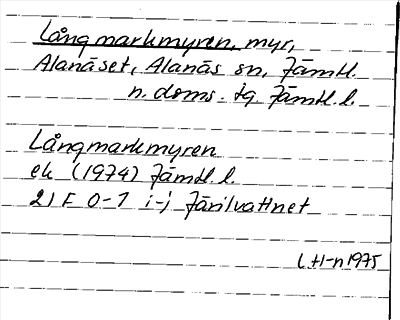 Långmarkmyren, myr,
Alanäset, Alanäs sn, Jämtl.
n. doms. tg. Jämtl. l.
Långmarkmyren
ek (1974) Jämtl. l.
21 F 0-1 i-j Järilvattnet
L H-n 1975